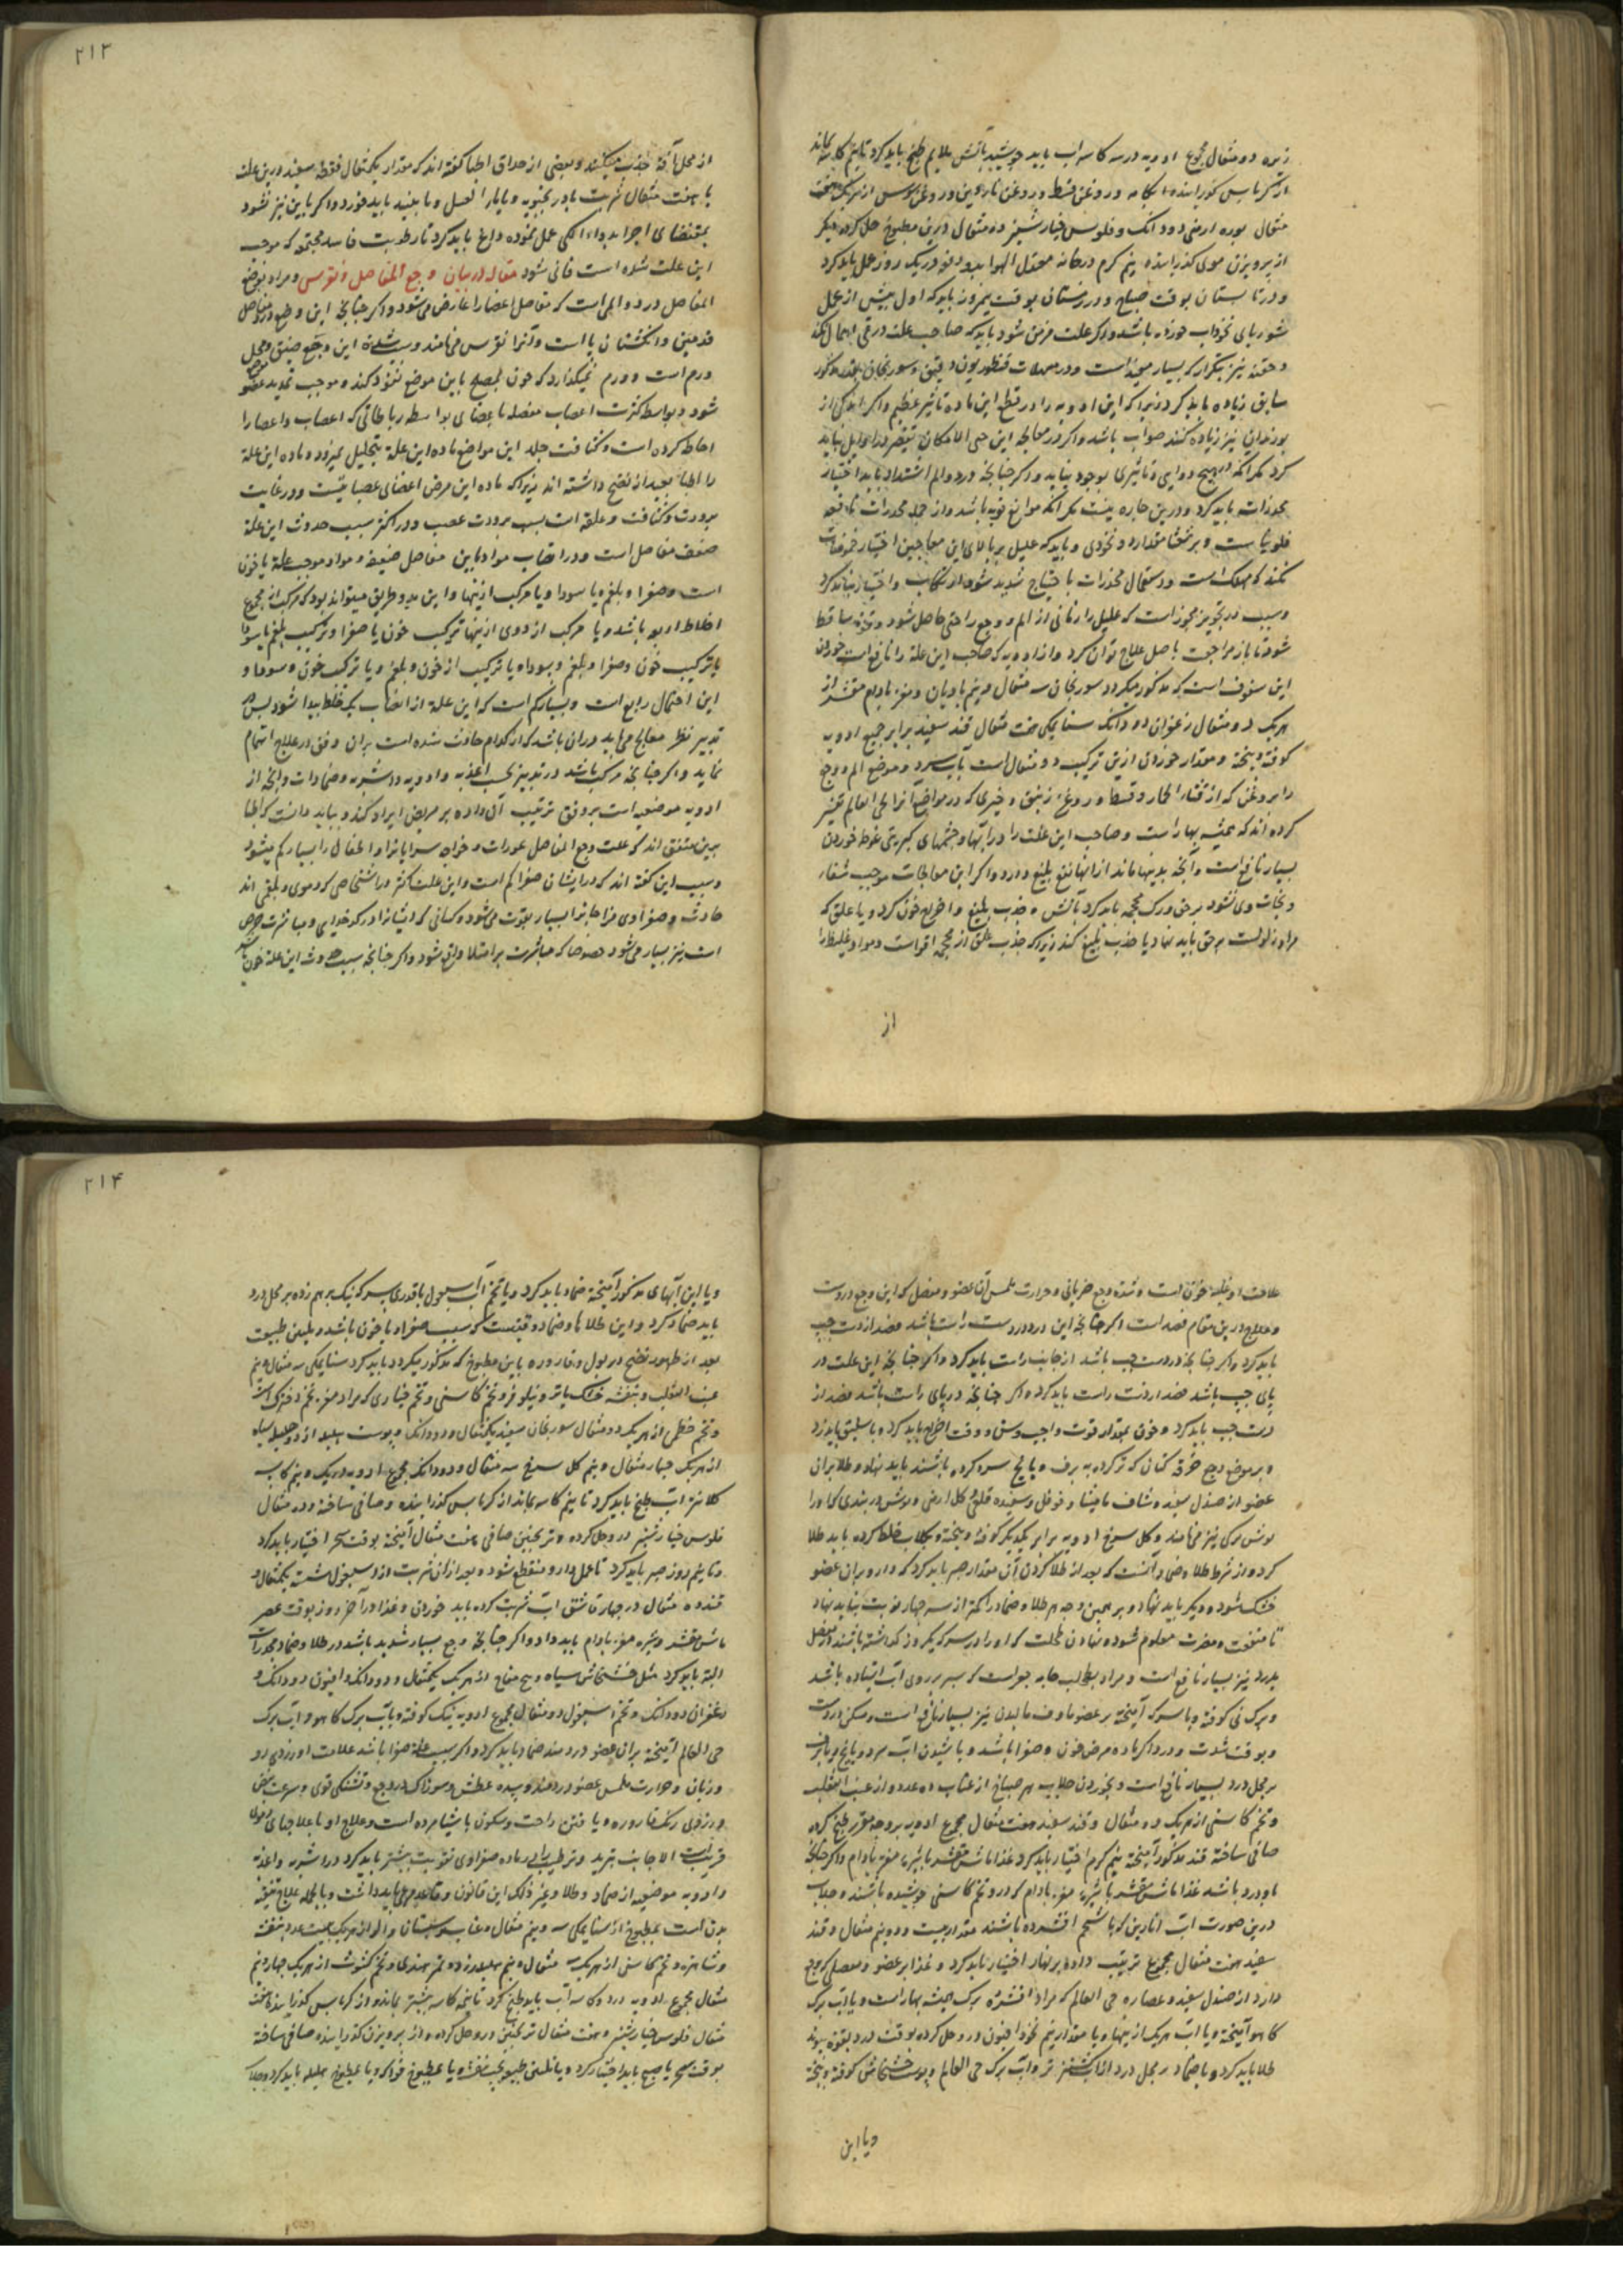 زیره دو مثقال مجموع ادویه در سه کاسه اب باید جوشید باتش ملایم طبخ باید کرد تا نیم کاسه بماند
از کرباس گذرانیده
مثقال بوره ارمنی دو دانک و فلوس خیارشنبر ده مثقال درین مطبوخ حل کرده دیگر
از پرویزن موی گذرانیده نیم گرم در خانه معتدل الهوا بدو دفعه در یک روز عمل باید کرد
و در تابستان بوقت صباح و در زمستان بوقت نیمروز باید که اول پیش از عمل
شوربای نخوداب خورده باشد و اگر علت مزمن شود باید که صاحب علت در قی اهمال نکند
و حقنه نیز بتکرار که بسیار مفید است و در مسهلات قنطوریون دقیق و سورنجان بقدر مذکور
سابق زیاده باید کرد زیرا که این ادویه را در قطع این ماده تاثیر عظیم و اگر اندکی از
بوزیدان نیز زیاده کنند صواب باشد و اگر در معالجه این حتی الامکان تقصیر در اوایل نباید
کرد مگر انکه بهیچ دوایی تاثیری بوجود نیاید و اگر چنانچه درد و الم اشتداد یابد اختیار
مخدرات باید کرد و درین چاره نیست مگر انکه موانع قویه باشد و از جمله مخدرات نافعه
فلونیاست و برشعثا مقدار دو نخودی و باید که علیل بر بالای این معاجین اختیار حموضات
نکند که مهلک است و استعمال مخدرات با حتیاج شدید شود ارتکاب و اختیار نباید کرد
و سبب در تجویز مجوز است که علیل را زمانی از الم و وجع راحتی حاصل شود و قوت ساقط
شود تا باز مراجعت باصل علاج توان کرد و از ادویه که صاحب این علت را نافع است خوردن
این سفوف است که مذکور میکردد سورنجان سه مثقال و نیم بادیان و مغز بادام مقشر از
هریک دو مثقال زعفران دو دانک سنا مکی هفت مثقال قند سفید برابر جمیع ادویه
کوفته و بیخته و مقدار خوردن ازین ترکیب دو مثقال است بآب سرد و موضع الم و وجع
را بروغن که از قثاء الحمار و قسط و روغن زنبق و خیری که در مواضع انرا حی العالم تفسیر
کرده اند که همیشه بهار است و صاحب این علت را در ابها و چشمهای کبریتی غوطه خوردن
بسیار نافع است و آنچه بدینها ماند از انها نفع بلیغ دارد و اگر این معالجات موجب شفاء
و نجات وی نشود بر حق ورک محجمه باید کرد باتش و جذب بلیغ و اخراج خون کرد و یا علق که
مراد زلوست بر حق باید نهاد یا جذب بلیغ کند زیرا که جذب علق از محجمه اقوا است و مواد غلیظ را
از
۲۱۳
از محل آفه جذب میکند و بعضی از حذاق اطبا گفته اند که مقدار یکمثقال فقط سعید درین علت
با هفت مثقال شربت بادرنجبویه و یا ماء العسل و مانند باید خورد و اگر باین نیز نشود
بمقتضای اخر الدواء الکی عمل نموده داغ باید کرد تا رطوبت فاسد مجتمع که موجب
این علت شده است فانی شود مقاله در بیان وجع المفاصل و نقرس و مراد بوجع
المفاصل درد و الم است که مفاصل اعضا را عارض می شود و اگر چنانچه این وجع در مفاصل
قدمین و انگشتان پا است و آنرا نقرس می نامند و سبب شدت این وجع ضیق محل
ورم است و ورم نمیگذارد که خون بمصلح باین موضع نفوذ کند و موجب تمدید عضو
شود و بواسطه کثرت اعصاب مفصله باعضای بواسطه رباطاتی که اعصاب و اعضا را
احاطه کرده است و کثافت جلد این مواضع ماده این علة بتحلیل نمیرود و ماده این علة
را اطبا بعید از نضج داشته اند زیرا که ماده این مرض اعضای عصبانیست و در غایت
برودت و کثافت و غلظه است بسبب برودت عصب و در اکثر سبب حدوث این علة
ضعف مفاصل است و در انصباب مواد باین مفاصل ضعیفه و مواد موجب علة یا خون
است و صفرا و بلغم یا سودا و یا مرکب ازینها و این بدو طریق میتواند بود که مرکب از مجموع
اخلاط اربعه باشد و یا مرکب از دوی ازینها ترکیب خون با صفرا و ترکیب بلغم با سودا
یا ترکیب خون و صفرا و بلغم و سودا و یا ترکیب از خون و بلغم و یا ترکیب خون و سودا و
این احتمال رابع است و بسیار کم است که این علة از انصاب یک خلط پیدا شود پس
تدبیر نظر معالج می باید دران باشد که از کدام حادث شده است بران وفق در علاج اهتمام
نماید و اگر چنانچه مرکب باشد در تدبیر بحسب اغذیه و ادویه و اشربه و ضمادات و آنچه از
ادویه موضعیه است بر وفق ترتیب آن داده بر مریض ایراد کند و بباید دانست که اطبا
برین متفق اند که علت وجع المفاصل عورات و خواجه سرایانرا و اطفال را بسیار کم میشود
و سبب این گفته اند که در ایشان صفرا کم است و این علت اکثر در اشخاصی که دموی و بلغمی اند
حادث و صفراوی مزاجانرا بسیار بقوت می شود و کسانی که ایشانرا در کدخدایی و مباشرت حرص
است نیز بسیار می شود خصوصا که مباشرت بر امتلا واقع شود و اگر چنانچه سبب حدوث این علة خون باشد
علامت او غلبه خون است و شدت وجع ضربانی و حرارت ملمس آن عضو و مفصل که این وجع در وست
و علاج درین مقام فصد است اگر چنانچه این درد در دست راست باشد فصد از دست چپ
باید کرد و اگر چنانچه در دست چپ باشد از جانب راست باید کرد و اگر چنانچه این علت در
پای چپ باشد فصد از دست راست باید کرد و اگر چنانچه در پای راست باشد فصد از
دست چپ باید کرد و خون بمقدار قوت واجب وسن و وقت اخراج باید کرد و باسلیق باید زد
و بر موضع وجع خرقه کتان که تر کرده به برف و یا یخ سرد کرده باشند باید نهاد و طلا بران
عضو از صندل سفید و شیاف مامیثا و فوفل و سفیده قلعی و گل ارمنی و بوش دربندی که او را
بوش ترکی نیز می نامند و گل سرخ ادویه برابر یکدیگر کوفته و بیخته و بگلاب خلط کرده باید طلا
کرد و از شرط طلا و ضماد آنست که بعد از طلا کردن آن مقدار صبر باید کرد که دارو بران عضو
خشک شود و دیگر باید نهاد و بر همین وجه هر طلا و ضماد را کمتر از سه چهار نوبت نباید نهاد
تا منفعت و مضرت معلوم شود و نهادن طحلب که او را در سرکه یکروز گذاشته باشند از مفصل
بدرد نیز بسیار نافع است و مراد بطحلب جامه جو است که سبز بر روی اب ایستاده باشد
و برک نی کوفته و با سرکه آمیخته بر عضو ماوف مالیدن نیز بسیار نافع است و مسکن دردست
و بوقت شدت و درد اگر ماده مرض خون و صفرا باشد و پاشیدن اب سرد و یا یخ و برف
بر محل درد بسیار نافع است و بخوردن جلاب هر صباح از عناب ده عدد و از عنب الثعلب
و تخم کاسنی از هریک دو مثقال و قند سفید هفت مثقال مجموع ادویه بر وجه مقرر طبخ کرده
صافی ساخته قند مذکور آمیخته نیم گرم اختیار باید کرد غذا ماش مقشر با شیره مغز بادام و اگر چنانچه
با درد باشد غذا ماش مقشر با شیره مغز بادام که در و تخم کاسنی جوشیده باشند و جلاب
درین صورت اب انارین که با شحم افشرده باشند مقدار بیست و دو نیم مثقال و قند
سفید هفت مثقال مجموع ترتیب داده بر نهار اختیار باید کرد و غذا بر عضو و مفصلی که وجع
دارد از صندل سفید و عصاره حی العالم که مراد افشره برک همیشه بهار است و یا اب برک
کاهو آمیخته و یا اب هریک ازینها و یا مقدار نیم نخود افیون درو حل کرده بوقت درد بقوه بود
طلا باید کرد و یا ضماد بر محل درد از اب گشنیز تر و آب برک حی العالم و پوست خشخاش کوفته و بیخته
و یا این
۲۱۴
و یا این آبهای مذکور آمیخته ضماد باید کرد و یا تخم اسبغول با قدری سرکه نیک بر هم زده بر محل درد
باید ضماد کرد و این طلاها و ضماد وقتیست که سبب صفرا و یا خون باشد و تلیین طبیعت
بعد از ظهور نضج در بول و قاروره باین مطبوخ که مذکور میکردد باید کرد سنا مکی سه مثقال و نیم
عنب الثعلب و بنفشه خشک یا تر و نیلوفر و تخم کاسنی و تخم خیاری که مراد مغز تخم
و تخم خطمی از هریک دو مثقال سورنجان سفید یکمثقال و دو دانک و پوست هلیله زرد و هلیله سیاه
از هریک چهار مثقال و نیم گل سرخ سه مثقال و دو دانک مجموع ادویه در یک و نیم کاسه
کلانتر اب طبخ باید کرد تا نیم کاسه بماند از کرباس گذرانیده و صافی ساخته و ده مثقال
فلوس خیارشنبر درو حل کرده و ترنجبین صافی هفت مثقال آمیخته بوقت سحر اختیار باید کرد
و تا نیم روز صبر باید کرد تا عمل دارو منقطع شود و بعد ازان شربت از اسبغول شسته یکمثقال و
قند ده مثقال در چهار قاشق اب شربت کرده باید خوردن و غذا در آخر روز بوقت عصر
ماش مقشر و شیره مغز بادام باید داد و اگر چنانچه وجع بسیار شدید باشد در طلا و ضماد مخدرات
البته باید کرد مثل خشخاش سیاه و بیخ تفاح از هریک یکمثقال و دو دانک و افیون دو دانک و
زعفران دو دانک و تخم اسبغول دو مثقال مجموع ادویه نیک کوفته و بآب برک کاهو و آب برک
حی العالم آمیخته بران عضو دردمند ضماد باید کرد و اگر سبب علة صفرا باشد علامت او زردی رو
و زبان و حرارت ملمس عضو دردمند و شدت عطش و سوزاک در وجع و تشنکی قوی و سرعت نبض
و زردی رنک قاروره و یافتن راحت و سکون باشیاء سرده است و علاج او با علاجهای دموی
قریب است الا جانب تبرید و ترطیب را در ماده صفراوی تقویت بیشتر باید کرد در اشربه و اغذیه
و ادویه موضعیه از ضماد و طلا و غیر ذلک این قانون و قاعده مرعی باید داشت و بالجمله علاج تنقیه
بدن است بمطبوخ از سنا مکی سه و نیم مثقال و عناب و سپستان و الو از هریک بیست عدد بنفشه
و شاهتره و تخم کاسنی از هریک سه مثقال و نیم هلیله زرد و تمر هندی و تخم کشوث از هریک چهار و نیم
مثقال مجموع ادویه در دو کاسه آب باید طبخ کرد تا نیم کاسه بیشتر بماند و از کرباس گذرانیده هفت
مثقال فلوس خیارشنبر و هفت مثقال ترنجبین درو حل کرده و از پرویزن گذرانیده صافی ساخته
بوقت سحر یا صبح باید اختیار کرد و یا تلیین طبیعت بحب بنفشه و یا بمطبوخ فواکه و یا بمطبوخ هلیله باید کرد و جلاب